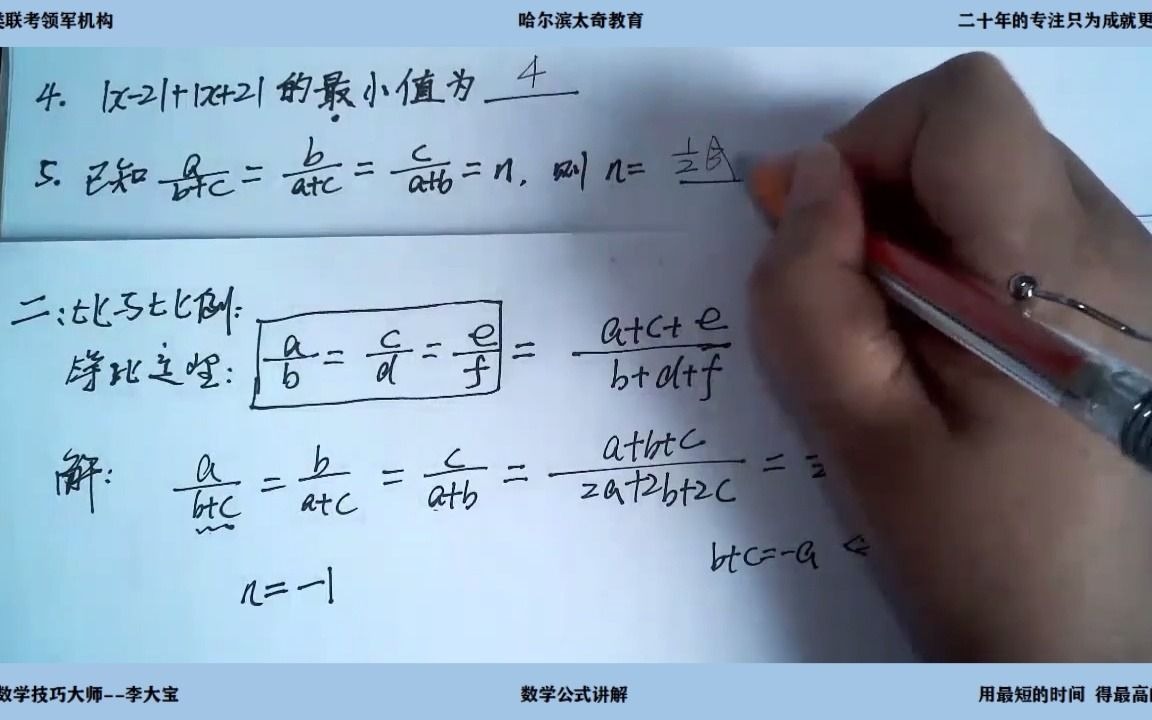 类联考领军机构 哈尔滨太奇教育 二十年的专注只为成就更
4. |x-2|+|x+2| 的最小值为 4
5. 已知 a/(b+c) = b/(a+c) = c/(a+b) = n, 则 n= 1/2 或
二: 比与比例:
等比定理: a/b = c/d = e/f = (a+c+e)/(b+d+f)
解: a/(b+c) = b/(a+c) = c/(a+b) = (a+b+c)/(2a+2b+2c) =
b+c=-a
n=-1
数学技巧大师--李大宝 数学公式讲解 用最短的时间 得最高